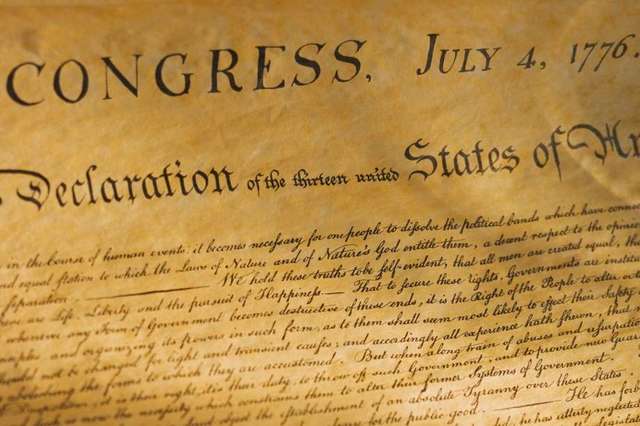 CONGRESS, JULY 4, 1776.
Declaration of the thirteen united States of Am
in the Course of human events, it becomes necessary for one people to dissolve the political bands which have connec
equal station to which the Laws of Nature and of Nature's God entitle them, a decent respect to the opinio
separation. We hold these truths to be self-evident, that all men are created equal, th
are Life, Liberty and the pursuit of Happiness. — That to secure these rights, Governments are institu
whenever any Form of Government becomes destructive of these ends, it is the Right of the People to alter o
and organizing its powers in such form, as to them shall seem most likely to effect their Safety
not be changed for light and transient causes; and accordingly all experience hath shewn, that m
abolishing the forms to which they are accustomed. But when a long train of abuses and usurpation
Despotism, it is their right, it is their duty, to throw off such Government, and to provide new Guar
is now the necessity which constrains them to alter their former Systems of Government.
object the establishment of an absolute Tyranny over these States.
for the public good. He has forb
he has utterly neglected